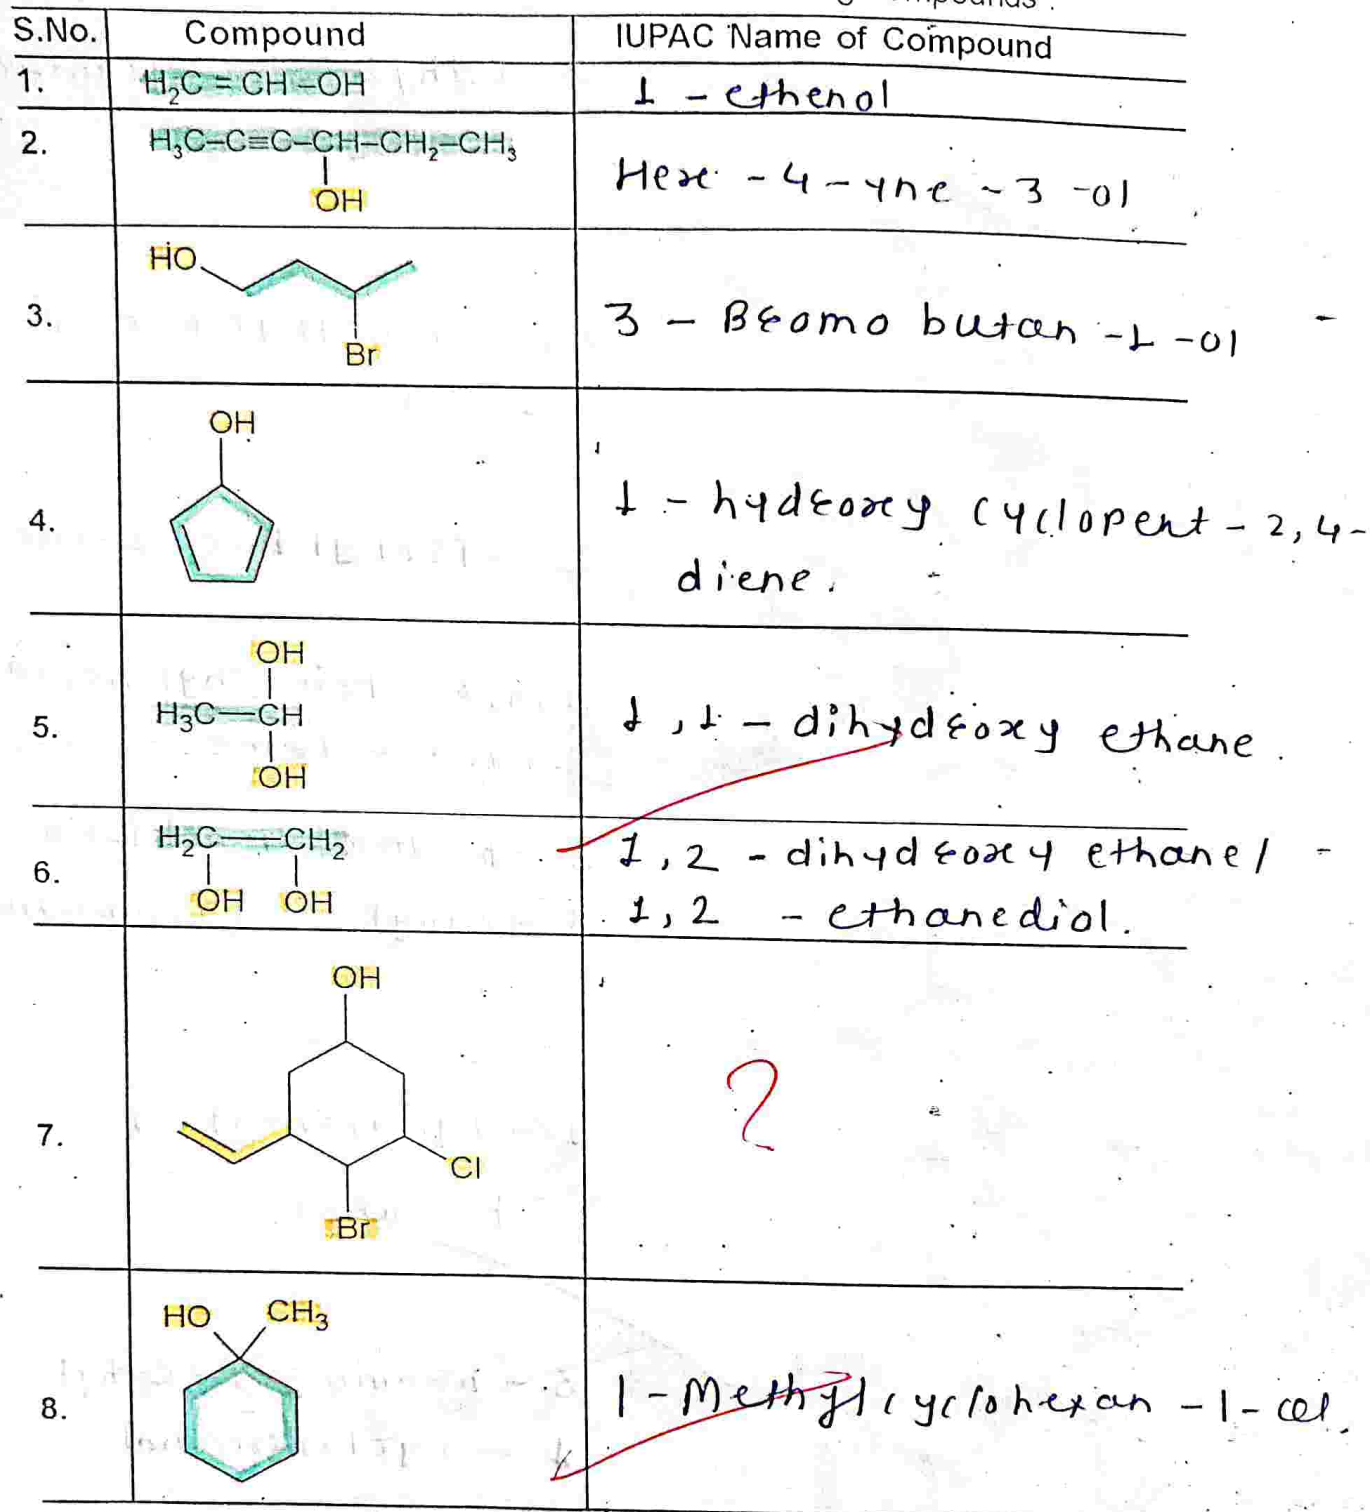 S.No. Compound IUPAC Name of Compound
1. H₂C=CH–OH 1 - ethenol
2. H₃C–C≡C–CH–CH₂–CH₃
OH
Hex - 4 - yne - 3 - ol
HO
3. Br
3 - Bromo butan - 1 - ol
OH
4.
1 - hydroxy cyclopent - 2, 4 -
diene.
OH
5. H₃C–CH
OH
1, 1 - dihydroxy ethane.
6. H₂C–CH₂
OH OH
1, 2 - dihydroxy ethane /
1, 2 - ethanediol.
OH
7. Cl
Br
?
HO CH₃
8. 1 - Methyl cyclohexan - 1 - ol.